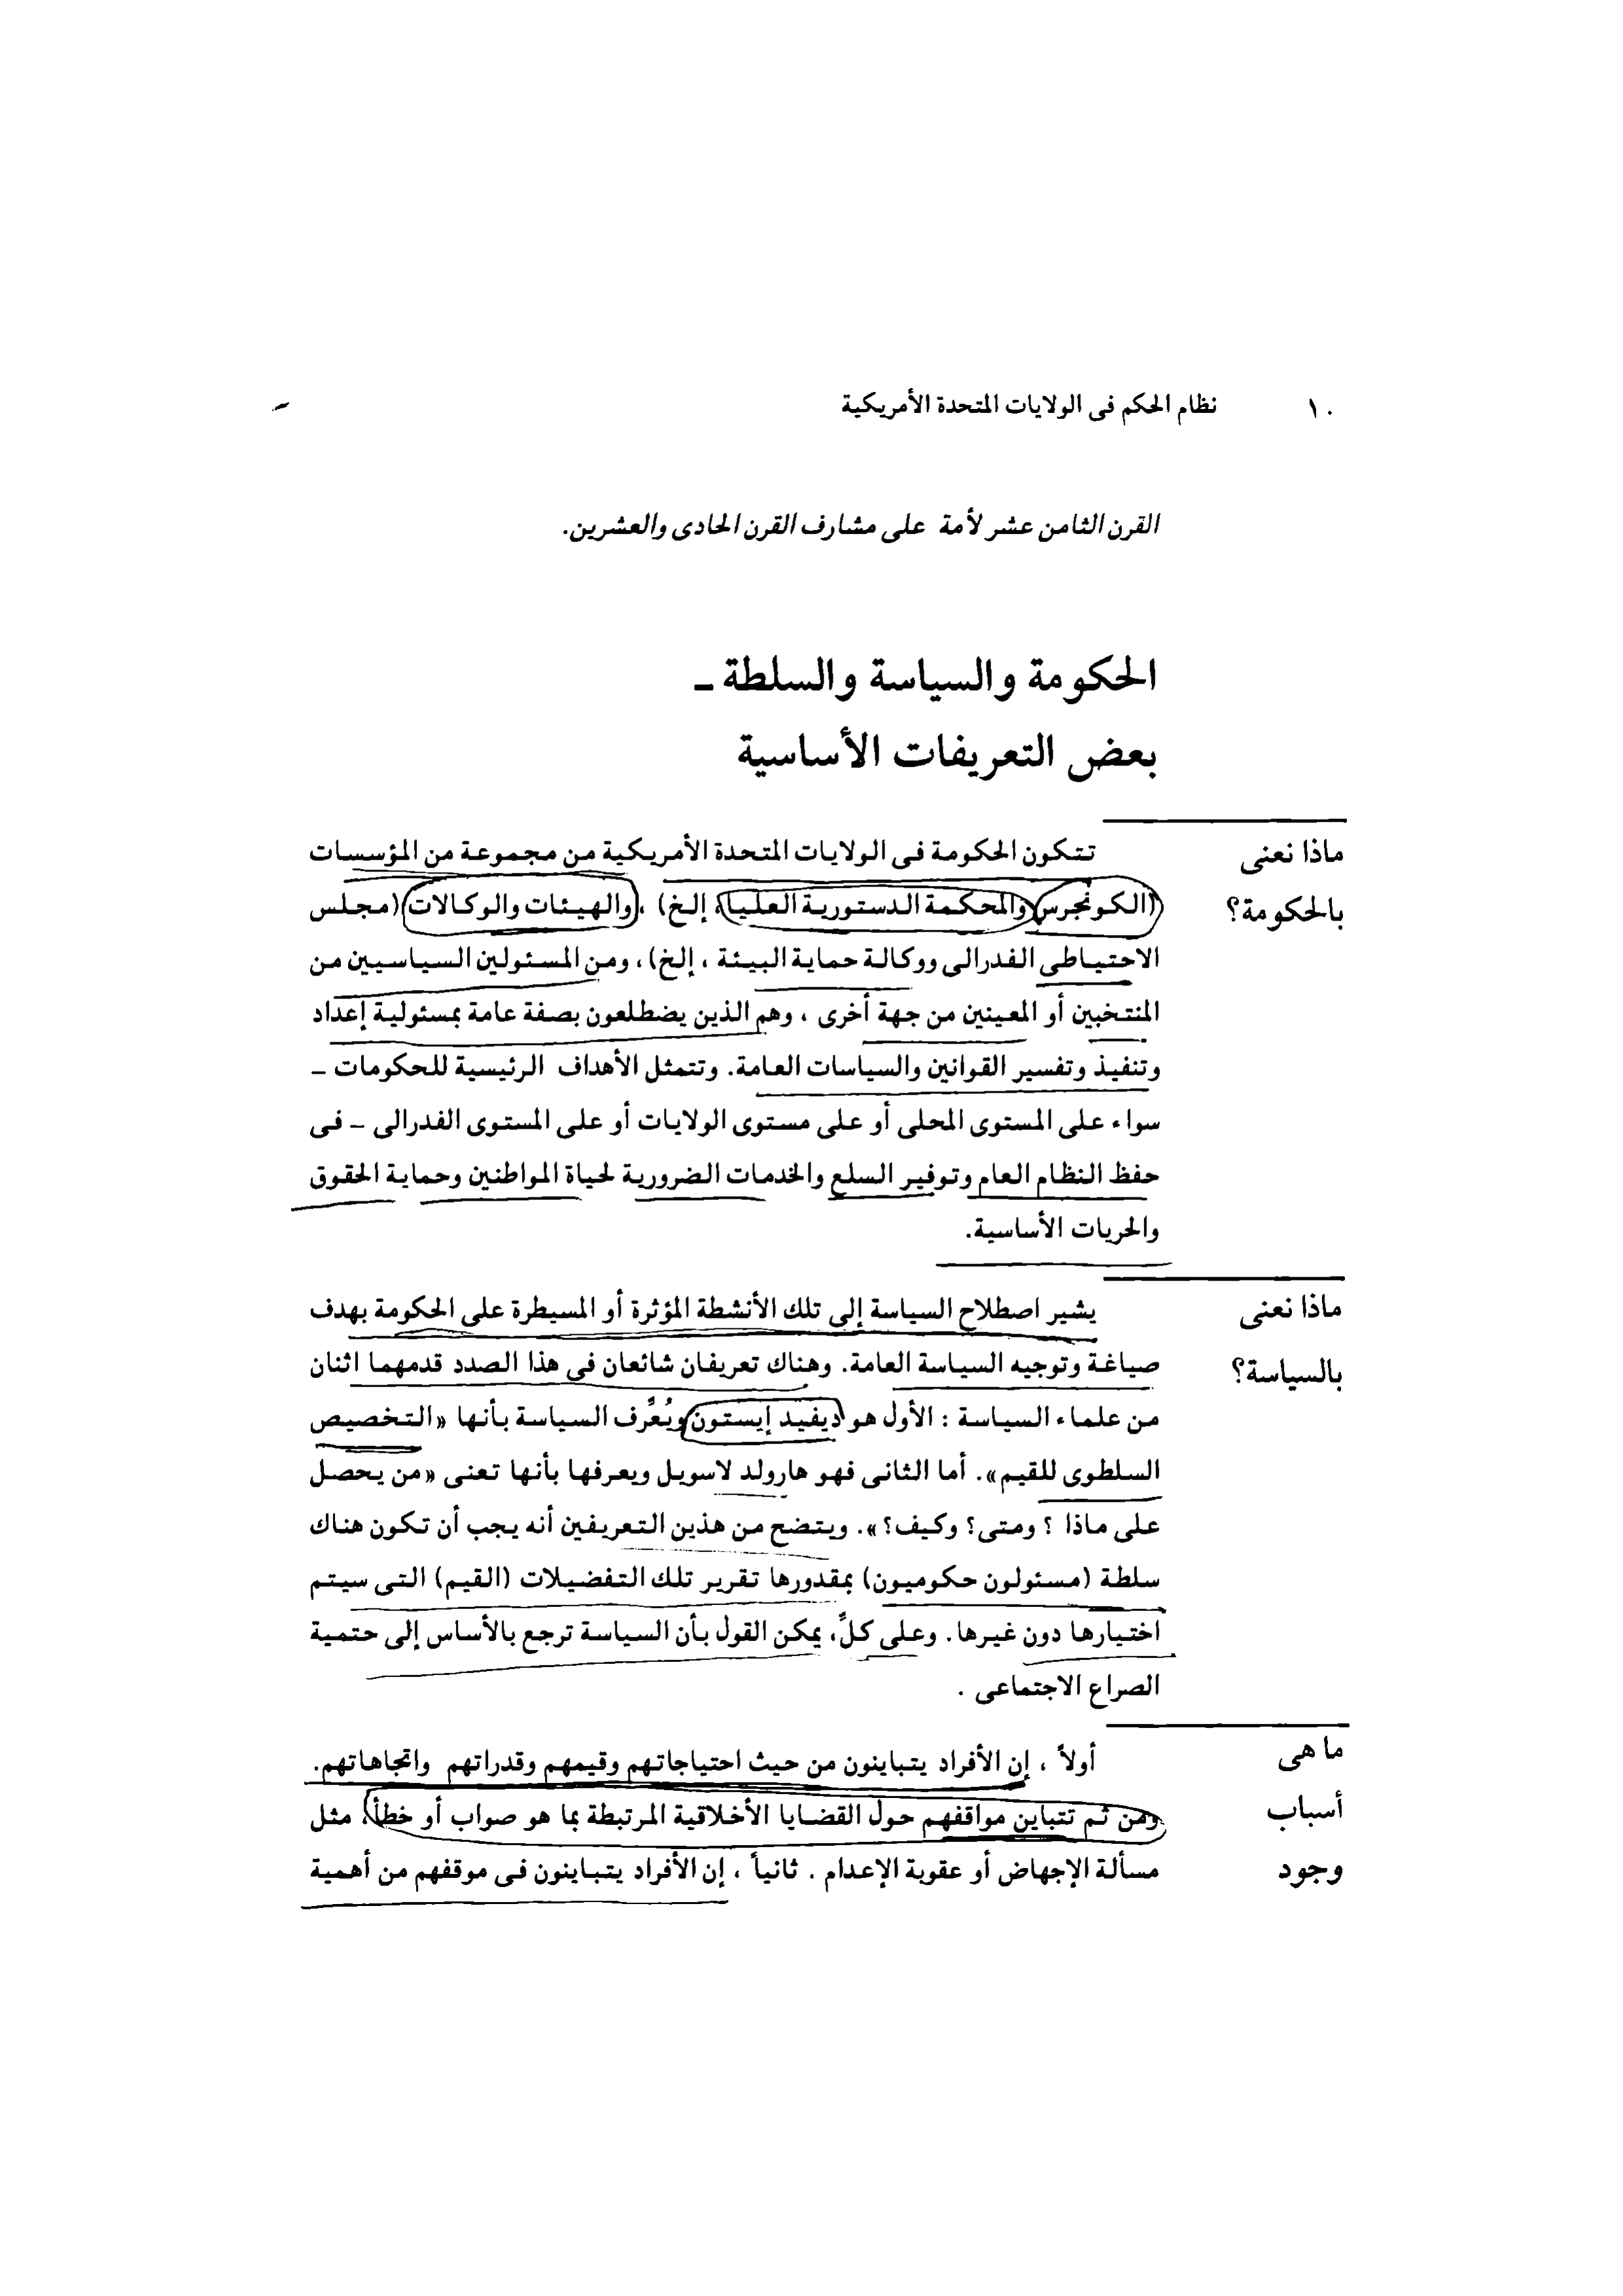 ١٠ نظام الحكم فى الولايات المتحدة الأمريكية
القرن الثامن عشر لأمة على مشارف القرن الحادى والعشرين.
الحكومة والسياسة والسلطة ـ
بعض التعريفات الأساسية
ماذا نعنى
بالحكومة؟
تتكون الحكومة فى الولايات المتحدة الأمريكية من مجموعة من المؤسسات
(الكونجرس والمحكمة الدستورية العليا، إلخ) ، والهيئات والوكالات (مجلس
الاحتياطى الفدرالى ووكالة حماية البيئة ، إلخ)، ومن المسئولين السياسيين من
المنتخبين أو المعينين من جهة أخرى ، وهم الذين يضطلعون بصفة عامة بمسئولية إعداد
وتنفيذ وتفسير القوانين والسياسات العامة. وتتمثل الأهداف الرئيسية للحكومات ـ
سواء على المستوى المحلى أو على مستوى الولايات أو على المستوى الفدرالى ـ فى
حفظ النظام العام وتوفير السلع والخدمات الضرورية لحياة المواطنين وحماية الحقوق
والحريات الأساسية.
ماذا نعنى
بالسياسة؟
يشير اصطلاح السياسة إلى تلك الأنشطة المؤثرة أو المسيطرة على الحكومة بهدف
صياغة وتوجيه السياسة العامة. وهناك تعريفان شائعان فى هذا الصدد قدمهما اثنان
من علماء السياسة : الأول هو ديفيد إيستون ويُعرِّف السياسة بأنها «التخصيص
السلطوى للقيم». أما الثانى فهو هارولد لاسويل ويعرفها بأنها تعنى «من يحصل
على ماذا ؟ ومتى؟ وكيف؟». ويتضح من هذين التعريفين أنه يجب أن تكون هناك
سلطة (مسئولون حكوميون) بمقدورها تقرير تلك التفضيلات (القيم) التى سيتم
اختيارها دون غيرها. وعلى كلٍّ، يمكن القول بأن السياسة ترجع بالأساس إلى حتمية
الصراع الاجتماعى .
ما هى
أسباب
وجود
أولاً ، إن الأفراد يتباينون من حيث احتياجاتهم وقيمهم وقدراتهم واتجاهاتهم.
ومن ثم تتباين مواقفهم حول القضايا الأخلاقية المرتبطة بما هو صواب أو خطأ، مثل
مسألة الإجهاض أو عقوبة الإعدام . ثانياً ، إن الأفراد يتباينون فى موقفهم من أهمية